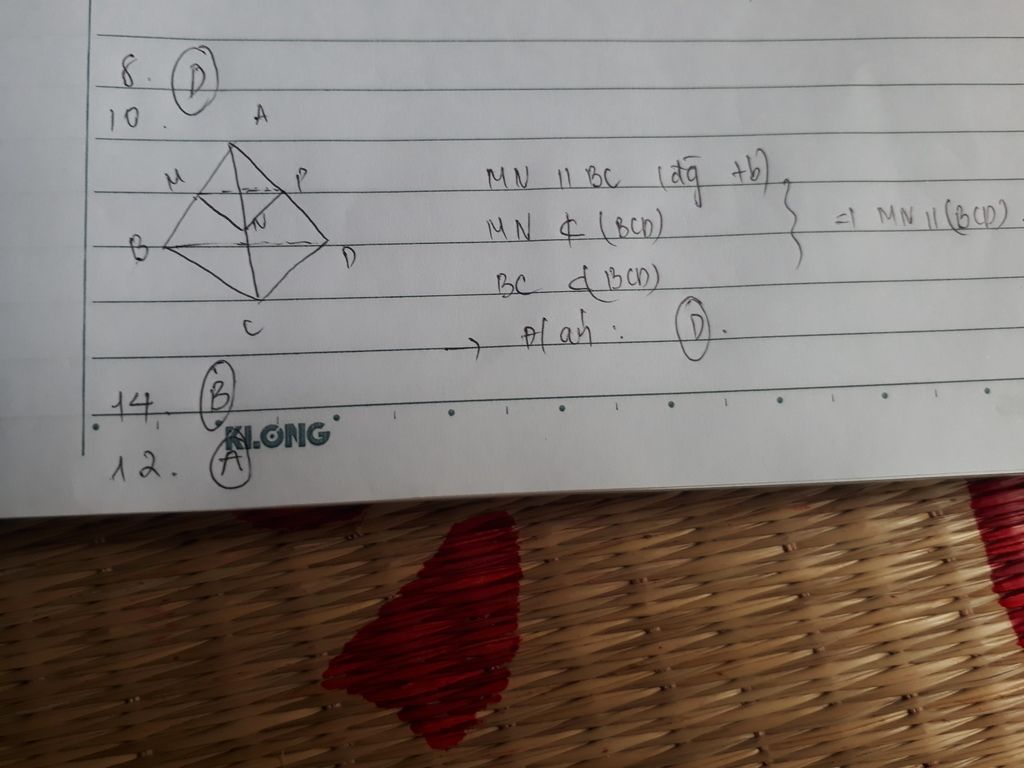 8. D
10.
A
M P
N
B D
C
MN // BC (đg tb)
MN ⊄ (BCD)
BC ⊂ (BCD)
} => MN // (BCD).
→ Đ/án: D.
14. B
KLONG
12. A